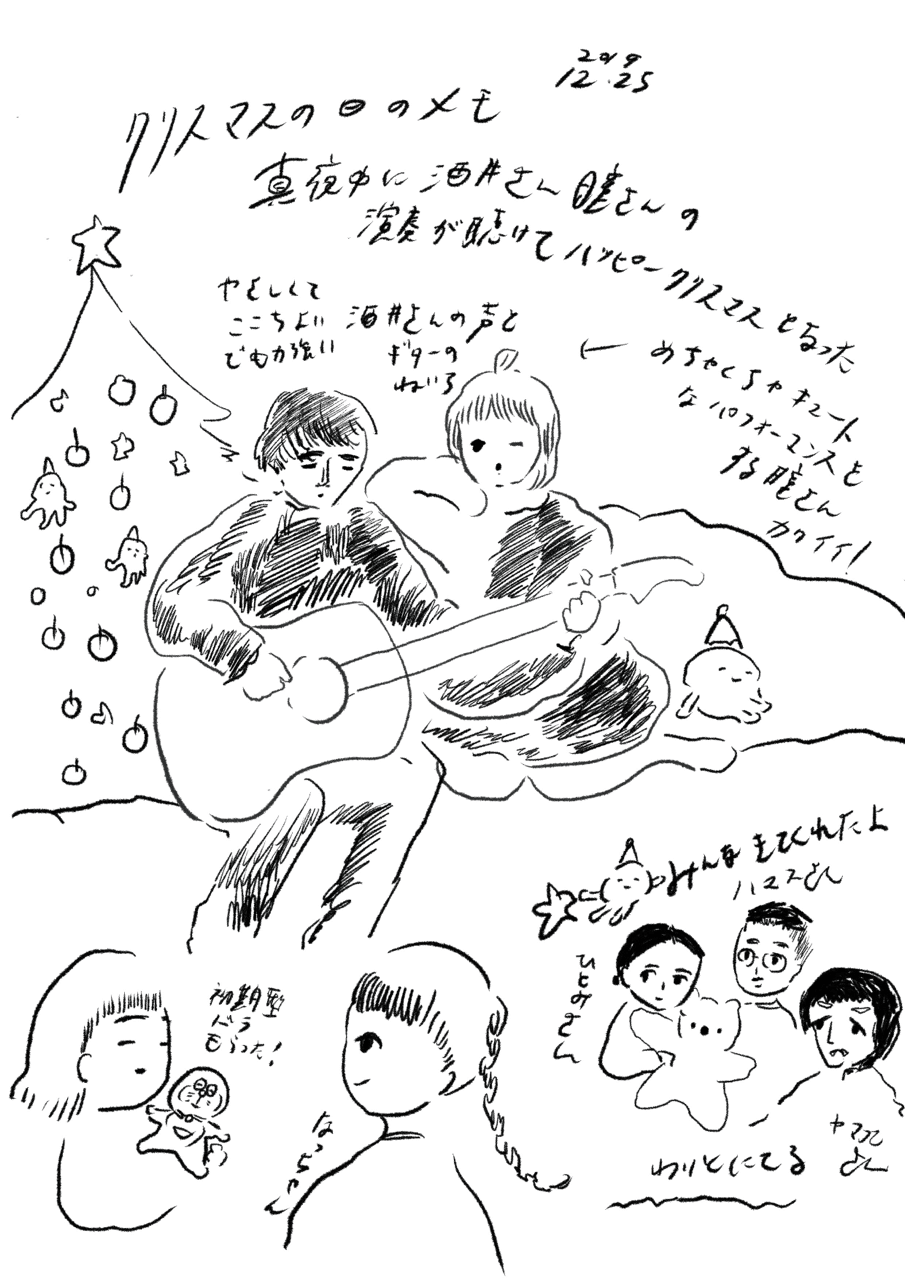 2019
12.25
クリスマスの日のメモ
真夜中に酒井さん瞳さんの
演奏が聴けてハッピークリスマスとなった
やさしくて
ここちよい
でも力強い
酒井さんの声と
ギターの
ねいろ
← めちゃくちゃキュート
なパフォーマンスを
する瞳さん
カワイイ!
みんなきてくれたよ
ハマスさん
ひとみさん
初期型
ドラ
もらった!
なっちゃん
わりとにてる
さん